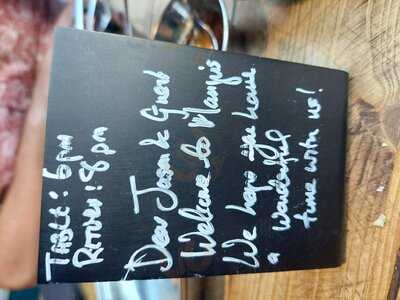 TABLE: 6pm
RETURN: 8pm
Dear Jason & Guest
Welcome to Mangiis
We hope you have
a wonderful
time with us!